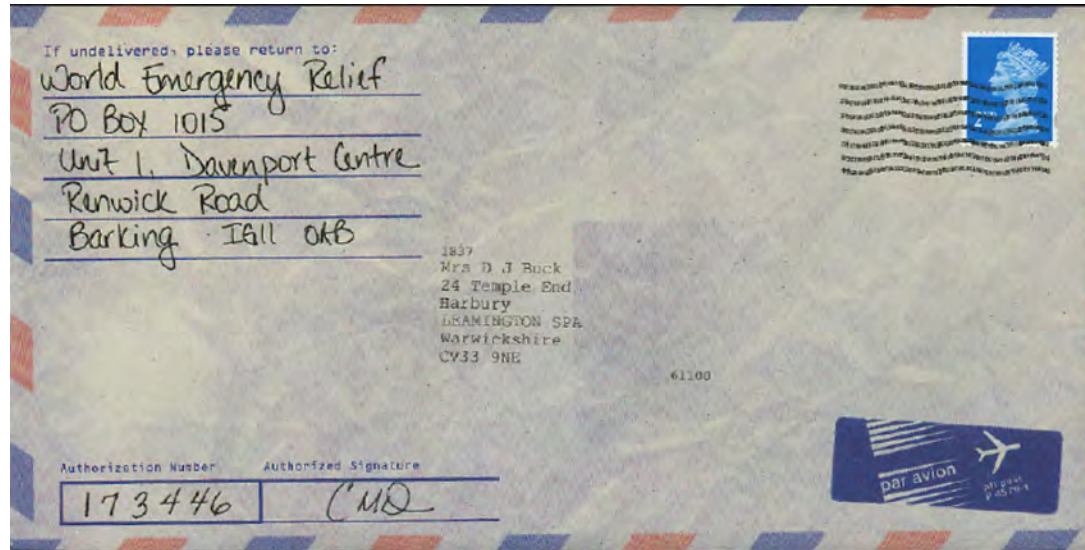 If undelivered, please return to:
World Emergency Relief
PO BOX 1015
Unit 1, Davenport Centre
Renwick Road
Barking IG11 0AB
2ND
1837
Mrs D J Buck
24 Temple End
Harbury
LEAMINGTON SPA
Warwickshire
CV33 9NE
61100
Authorization Number Authorized Signature
173446 CMD
par avion
air mail